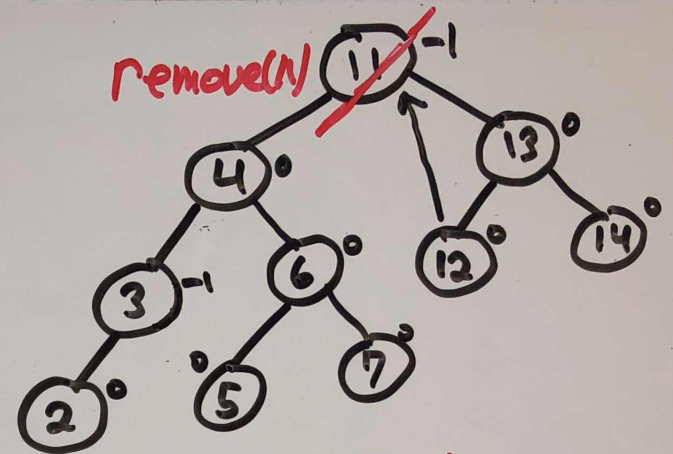 11 -1
remove(11)
4 0
13 0
3 -1
6 0
12 0
14 0
2 0
0 5
7 0